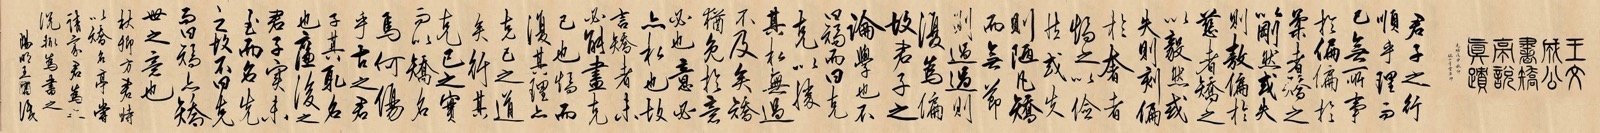 王文
成公
書矯
亭說
真蹟
君子之行
順乎理而
已無所事
於偏偏於
柔者矯之
以剛然或失
則傲偏於
慈者矯之
以毅然或
失則刻偏
於奢者
矯之以儉
然或失
則陋凡矯
而無節
則過過則
復為偏
故君子之
論學也不
曰矯而曰克
克以勝
其私無過
不及矣矯
猶免於意
必也意必
亦私也故
言矯者未
必能盡克
己也矯而
復其理亦
克己之道
矣行其
克己之實
而以矯名
焉何傷
乎古之君
子其取名
也廉後之
君子實未
至而名先
之故不曰克
而曰矯亦矯
世之意也
秋卿方君時
舉以矯名亭嘗
請家君為之
說輒為書之
陽明王守仁識